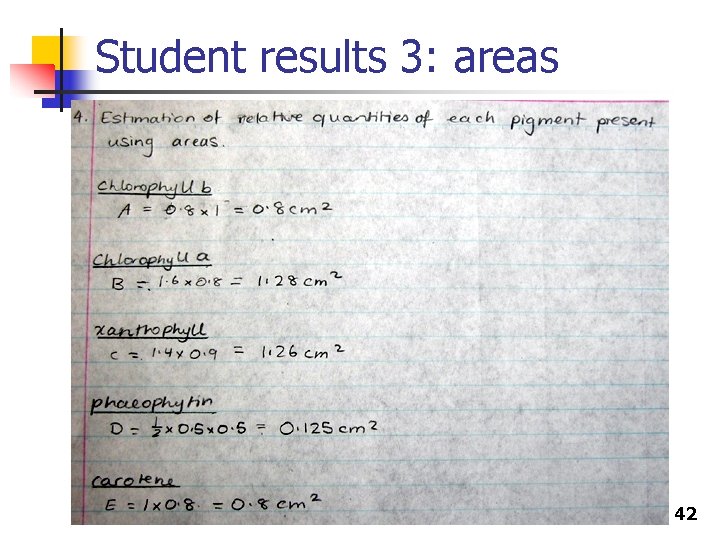 Student results 3: areas
4. Estimation of relative quantities of each pigment present
using areas.
Chlorophyll b
A = 0.8 x 1 = 0.8 cm2
Chlorophyll a
B = 1.6 x 0.8 = 1.28 cm2
xanthophyll
C = 1.4 x 0.9 = 1.26 cm2
phaeophytin
D = 1/2 x 0.5 x 0.5 = 0.125 cm2
carotene
E = 1 x 0.8 = 0.8 cm2
42